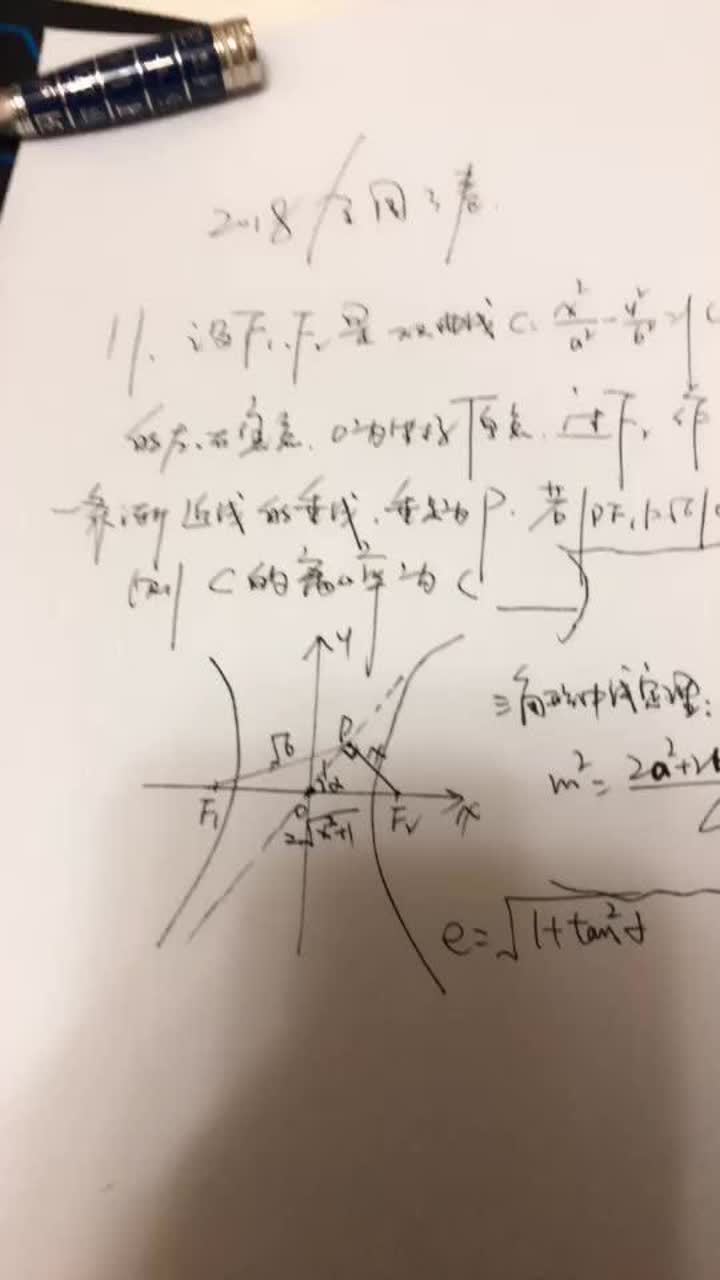 2018 全国3卷
11. 设F₁、F₂是双曲线C: x²/a² - y²/b² = 1 (
的左、右焦点. O为坐标原点. 过F₂作
一条渐近线的垂线, 垂足为P. 若|PF₁|=√6|O
则C的离心率为( )
y
P
√6
x
1
α
F₁
O
F₂
x
2√x²+1
三角形中线定理:
m² = 2a²+2b
e=√1+tan²α